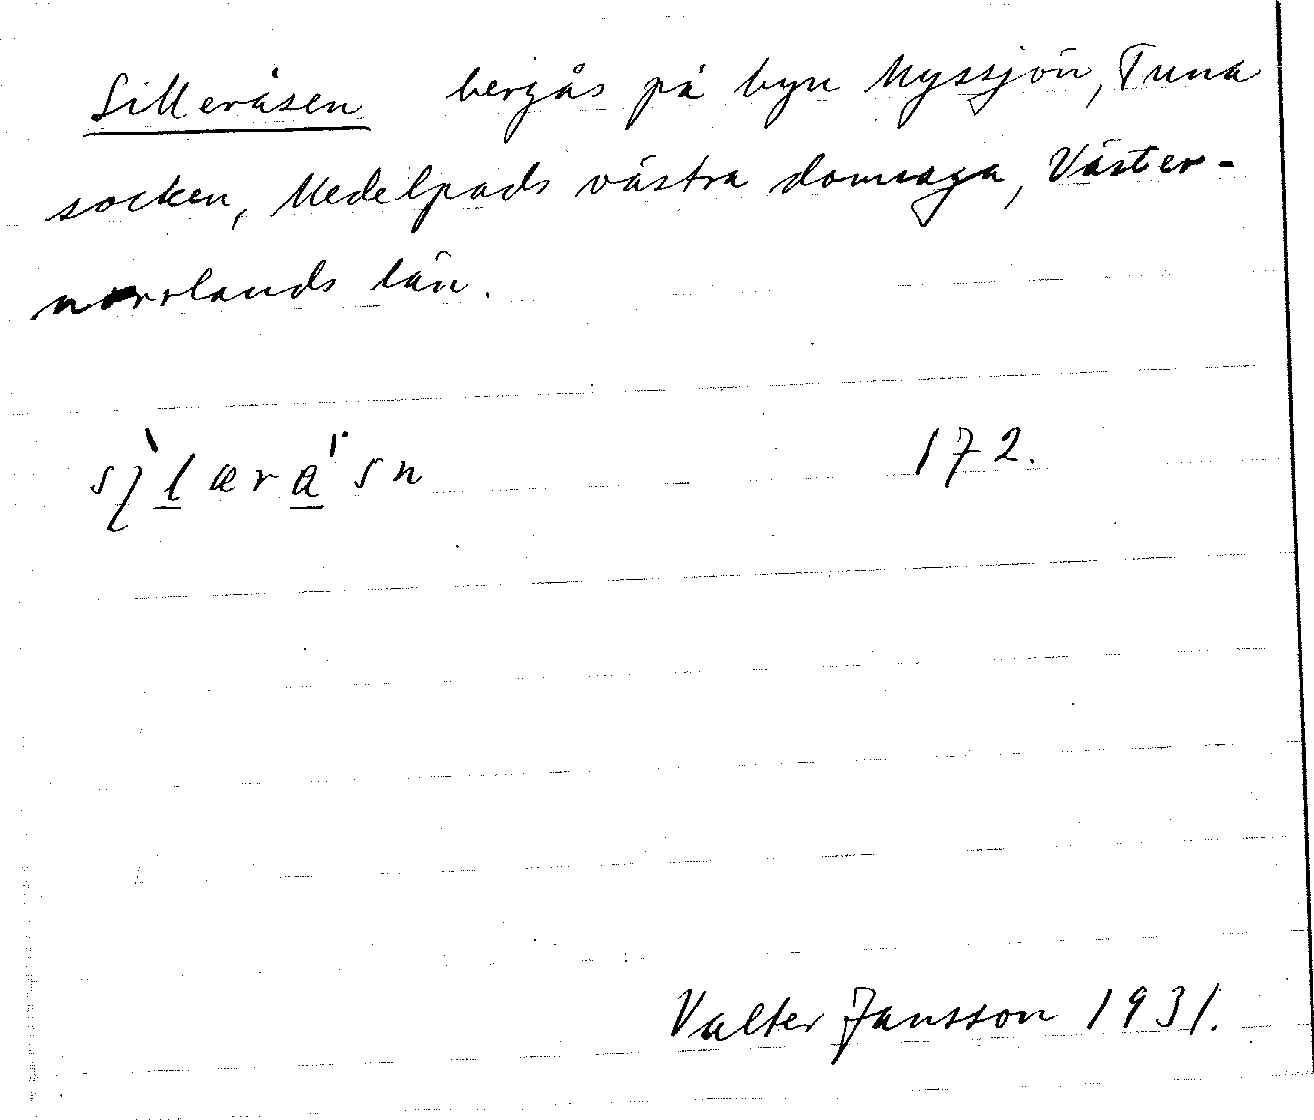 Silleråsen bergås på byn Nyssjön, Tuna
socken, Medelpads västra domsaga, Väster-
norrlands län.
172.
Valter Jansson 1931.